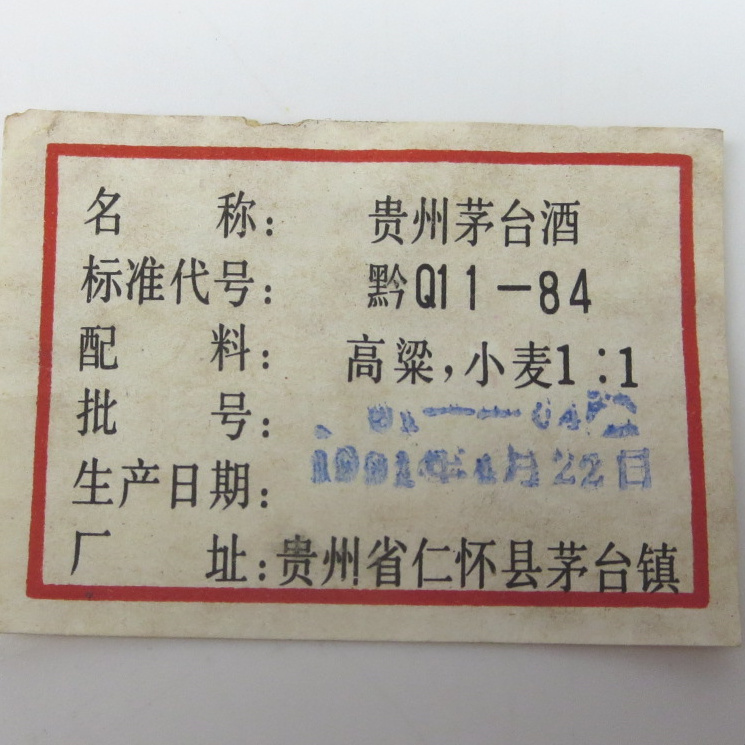 名 称: 贵州茅台酒
标准代号: 黔Q11-84
配 料: 高粱,小麦1:1
批 号:
生产日期: 1991年4月22日
厂 址:贵州省仁怀县茅台镇